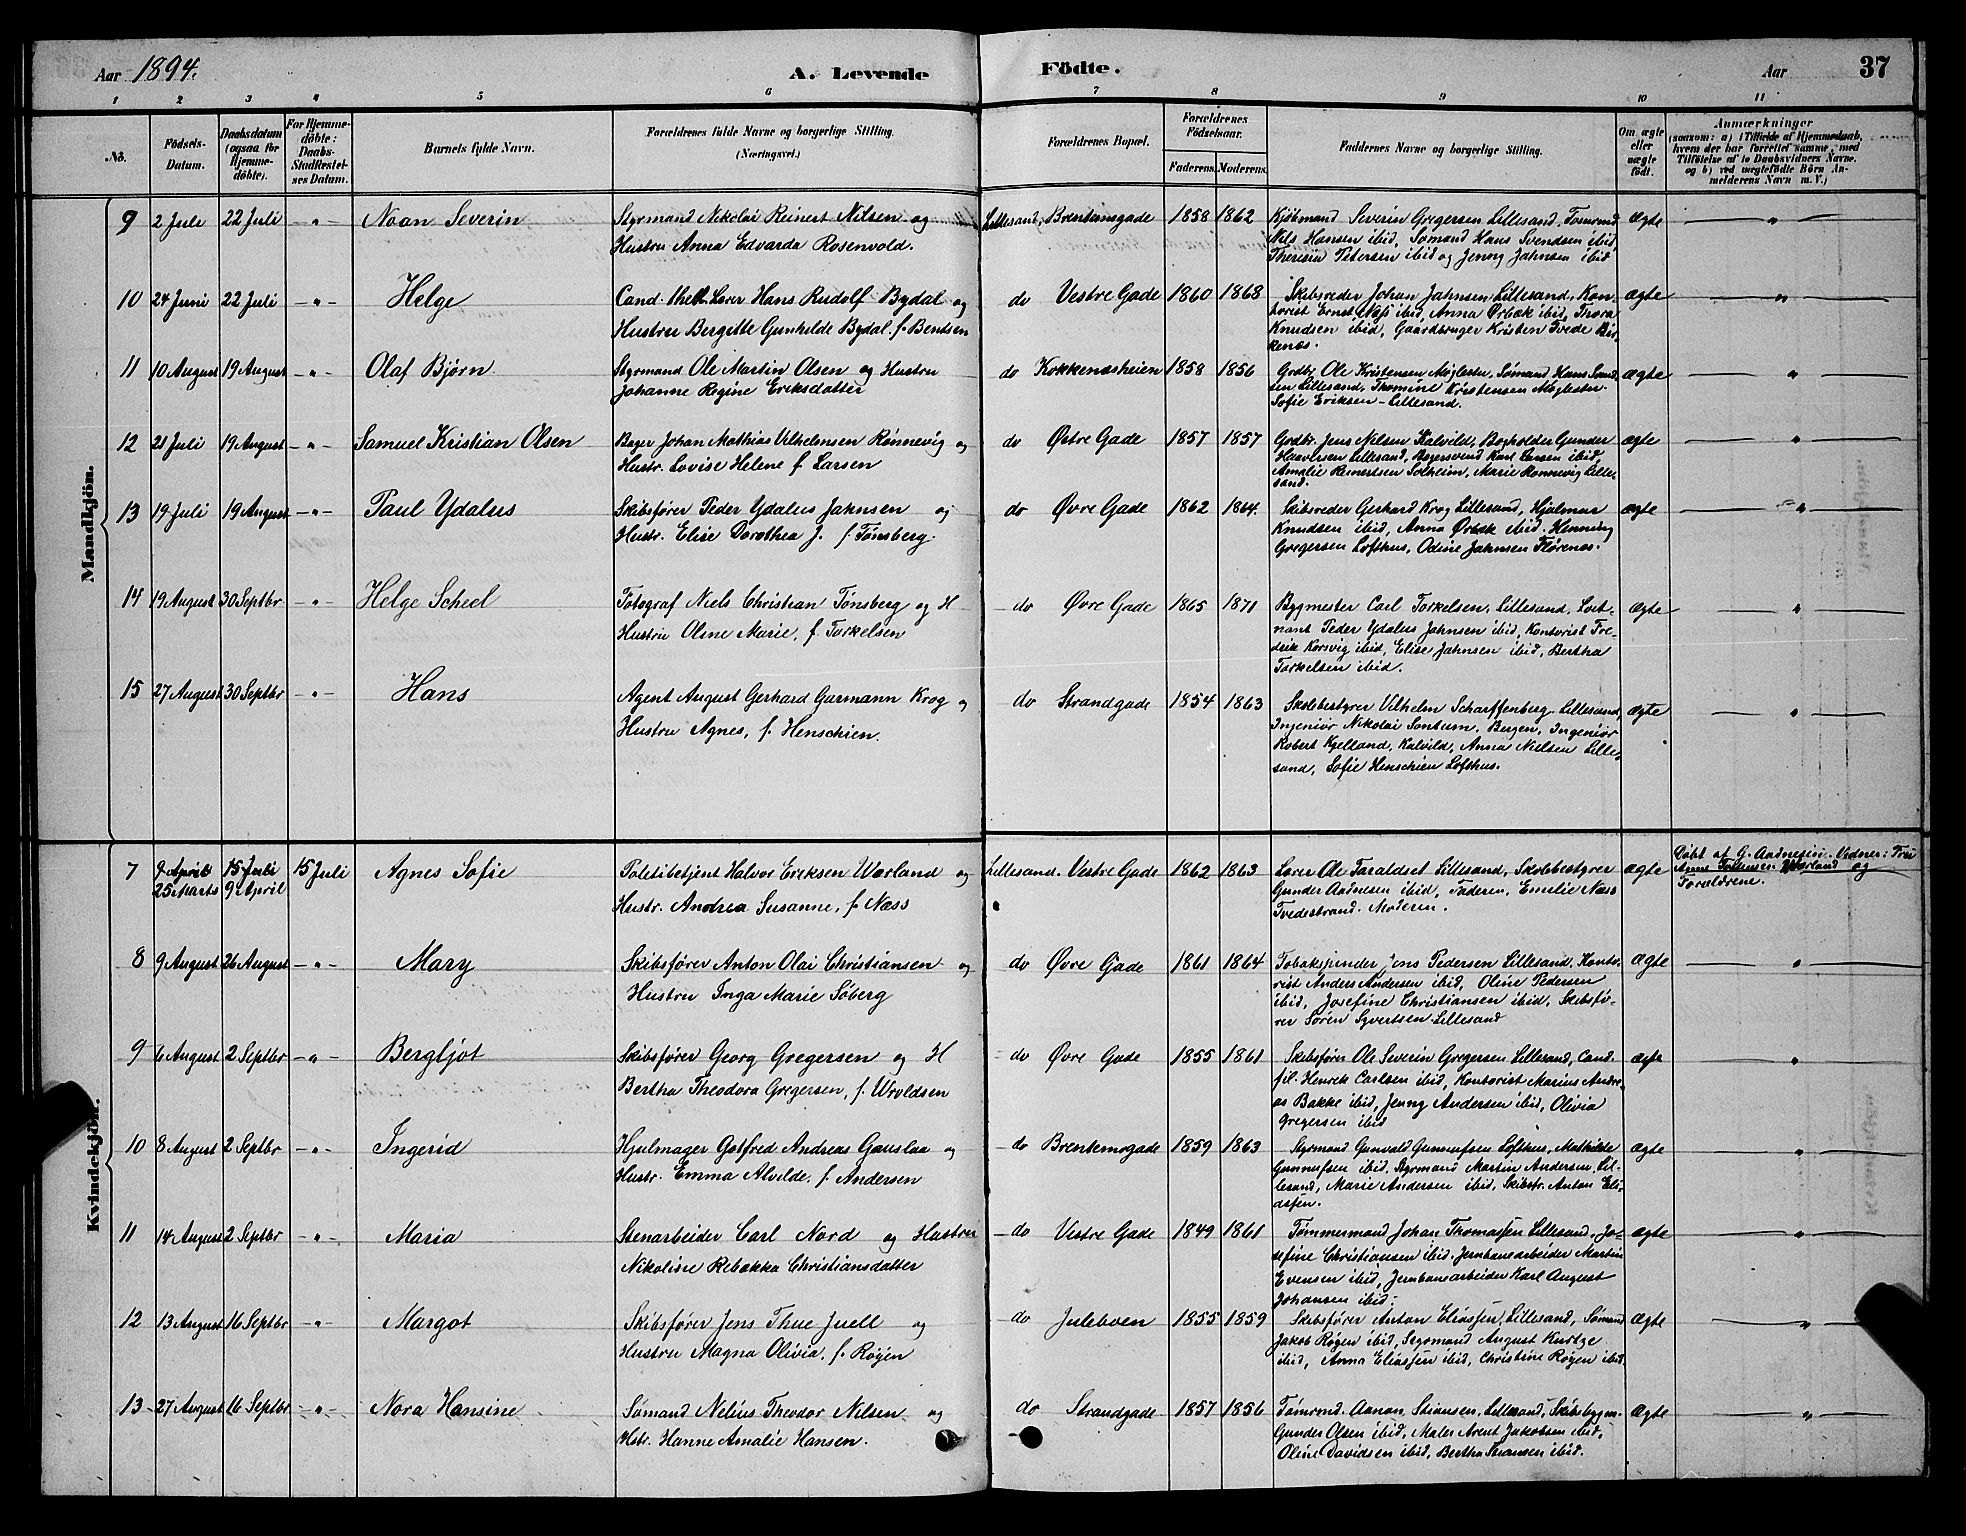 Aar 1894. A. Levende Födte. Aar 37
1 2 3 4 5 6 7 8 9 10 11
No.
Födsels-Datum.
Daabsdatum (ogsaa for Hjemme-döbte).
For Hjemme-döbte: Daabs-Stadfæstel-ses Datum.
Barnets fulde Navn.
Forældrenes fulde Navne og borgerlige Stilling. (Næringsvei.)
Forældrenes Bopæl.
Forældrenes Födselsaar.
Faderens. Moderens.
Faddernes Navne og borgerlige Stilling.
Om ægte eller uægte födt.
Anmærkninger
(saasom: a) i Tilfælde af Hjemmedaab, hvem der har forrettet samme, med Tilföielse af to Daabsvidners Navne, og b) ved uægtefödte Börn Anmelderens Navn m. V.)
Mandkjön.
9 2 Juli 22 Juli -"- Noan Severin Styrmand Nikolai Reinert Nilsen og Lillesand, Brentemsgade 1858 1862 Kjøbmand Severin Gregersen Lillesand, Tømrmd ægte "
Hustru Anna Edvarda Rosenvold. Nils Hansen ibid, Sømand Hans Svendsen ibid
Theresia Petersen ibid og Jenny Jahnsen ibid
10 24 Juni 22 Juli -"- Helge Cand. theol. Lærer Hans Rudolf Bydal og do Vestre Gade 1860 1868 Skibsreder Johan Jahnsen Lillesand, Kon- ægte "
Hustru Bergitte Gunhilde Bydal f. Bentsen torist Ernst Næss ibid, Anna Ørbæk ibid, Thora
Knudsen ibid, Gaardbruger Kristen Tvede Bir-
kenæs.
11 10 August 19 August -"- Olaf Bjørn Styrmand Ole Martin Olsen og Hustru do Kokkenæsheien 1858 1856 Grdbr. Ole Kristensen Møglestu, Sømand Hans Svend- ægte "
Johanne Regine Eriksdatter sen Lillesand, Thomine Kristensen Møglestu
Sofie Eriksen - Lillesand.
12 21 Juli 19 August -"- Samuel Kristian Olsen Bager Johan Mathias Vilhelmsen Rønnevig og do Østre Gade 1857 1857 Grdbr. Jens Nilsen Kalvild, Bogholder Gunder ægte "
Hustr. Lovise Helene f. Larsen Haaversen Lillesand, Bagersvend Karl Larsen ibid,
Amalie Reinertsen Solheim, Marie Rønnevig Lille-
sand.
13 19 Juli 19 August -"- Paul Ydalus Skibsfører Peder Ydalus Jahnsen og do Øvre Gade 1862 1864. Skibsreder Gerhard Krog Lillesand, Hjalmar ægte "
Hustr. Elise Dorothea J. f. Tønsberg. Knudsen ibid, Anna Ørbæk ibid. Henning
Gregersen Lofthus, Odine Jahnsen Florenæs.
14 19 August 30 Septbr -"- Helge Scheel Fotograf Niels Christian Tønsberg og H do Øvre Gade 1865 1871 Bygmester Carl Torkelsen, Lillesand, Løit- ægte "
Hustru Olme Marie, f. Torkelsen nant Peder Ydalus Jahnsen ibid, Kontorist Fre-
drik Korsvig ibid, Elise Jahnsen ibid, Bertha
Torkelsen ibid.
15 27 August 30 Septbr -"- Hans Agent August Gerhard Garmann Krog og do Strandgade 1854 1863 Skolebestyrer Vilhelm Scharffenberg Lillesand, ægte "
Hustru Agnes, f. Henschien. Ingeniør Nikolai Sontum, Bergen, Ingeniør
Robert Kjelland, Kalvild, Anna Nielsen Lille-
sand, Sofie Henschien Lofthus.
Kvindekjön.
7 9 April 15 Juli 15 Juli Agnes Sofie Politibetjent Halvor Eriksen Værland og Lillesand. Vestre Gade 1862 1863 Lærer Ole Foraldset Lillesand, Skolebestyrer ægte Døbt af G. Aadnesen. Vidner: Fru
25 Marts 9 April Hustr. Andrea Susanne, f. Næss Gunder Aadnesen ibid, Faderen, Emilie Næss Værland og
Tvedestrand. Moderen. Forældrene.
8 9 August 26 August -"- Mary Skibsfører Anton Olai Christiansen og do Øvre Gade 1861 1864 Tobakspinder Jens Pedersen Lillesand, Konto- ægte "
Hustru Inga Marie Søberg rist Anders Andersen ibid, Oline Pedersen
ibid, Josefine Christiansen ibid, Skibsfø-
rer Søren Syvertsen Lillesand
9 6 August 2 Septbr -"- Bergljot Skibsfører Georg Gregersen og H do Øvre Gade 1855 1861 Skibsfører Ole Severin Gregersen Lillesand, Cand. ægte "
Bertha Theodora Gregersen, f. Woldsen fil. Henrik Carlsen ibid, Kontorist Marius Andre-
as Bakke ibid, Jenny Andersen ibid, Olivia
Gregersen ibid
10 8 August 2 Septbr -"- Ingerid Hjulmager Gotfred Andreas Gauslaa og do Brentemsgade 1859 1863 Styrmand Gunvald Gunnufsen Lofthus, Mathilde ægte "
Hustr. Emma Alvilde, f. Andersen Gunnufsen ibid, Styrmand Martin Andersen, Lil-
lesand, Marie Andersen ibid, Skibsfr. Anton Eli-
assen.
11 14 August 2 Septbr -"- Maria Stenarbeider Carl Nord og Hustru do Vestre Gade 1849 1861 Tømmermand Johan Thomassen Lillesand, Jo- ægte "
Nikoline Rebekka Christiansdatter sefine Christiansen ibid. Jernbanearbeider Martin
Evensen ibid, Jernbanearbeider Karl August
Johansen ibid;
12 13 August 16 Septbr -"- Margot Skibsfører Jens Thue Juell og do Juleboen 1855 1859 Skibsfører Anton Eliassen, Lillesand, Sømand ægte "
Hustru Magna Olivia, f. Røyen Jakob Røyen ibid, August Kurtze
ibid, Anna Eliassen ibid, Christine Røyen ibid.
13 27 August 16 Septbr -"- Nora Hansine Sømand Nelius Theodor Nilsen og do Strandgade 1857 1856 Tømrmd. Aanon Stiansen, Lillesand, Skibsbygm. ægte "
Hstr. Hanne Amalie Hansen. Gunder Olsen ibid, Maler Arent Jakobsen ibid,
Oline Davidsen ibid, Bertha Stiansen ibid.